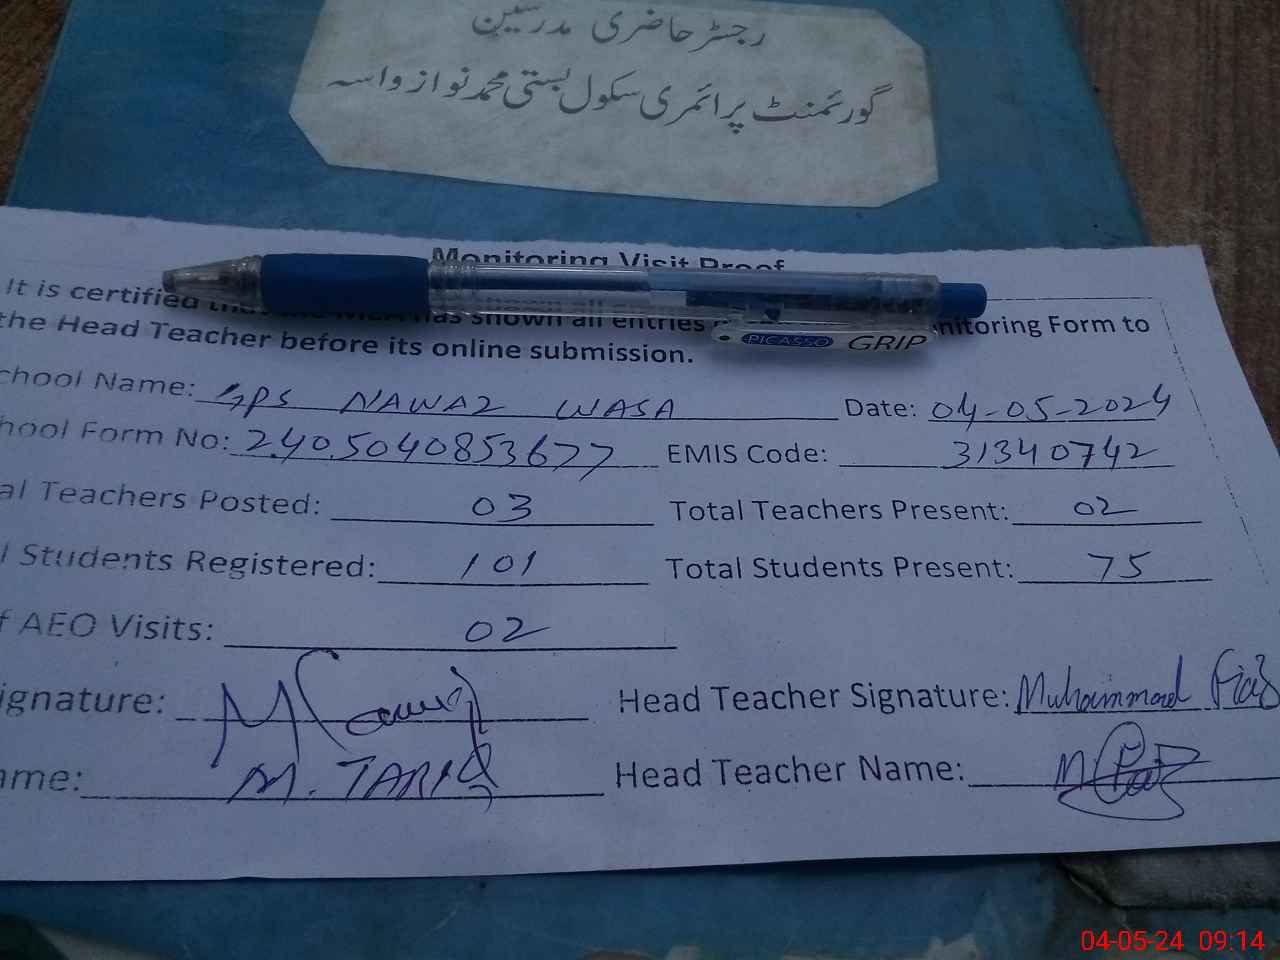 رجسٹر حاضری مدرسین
گورنمنٹ پرائمری سکول بستی محمد نواز واسہ
Monitoring Visit Proof
It is certified that the MEA has shown all entries nitoring Form to
the Head Teacher before its online submission.
PICASSO GRIP
chool Name: GPS NAWAZ WASA Date: 04-05-2024
hool Form No: 2405040853677 EMIS Code: 31340742
al Teachers Posted: 03 Total Teachers Present: 02
l Students Registered: 101 Total Students Present: 75
f AEO Visits: 02
ignature: Head Teacher Signature: Muhammad Fiaz
ame: M. TARIQ Head Teacher Name:
04-05-24 09:14